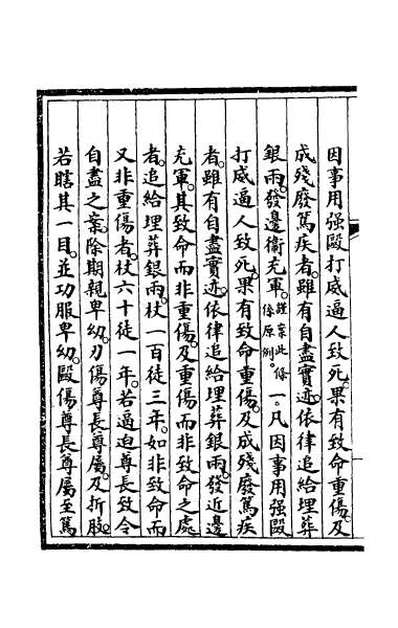 因事用强毆打威逼人致死。果有致命重傷。及
成殘廢篤疾者。雖有自盡實迹。依律追給埋葬
銀兩。發邊衞充軍。謹案此條係原例。一。凡因事用强毆
打威逼人致死。果有致命重傷。及成殘廢篤疾
者。雖有自盡實迹。依律追給埋葬銀兩。發近邊
充軍。其致命而非重傷。及重傷而非致命之處
者。追給埋葬銀兩。杖一百徒三年。如非致命而
又非重傷者。杖六十徒一年。若逼迫尊長致令
自盡之案。除期親卑幼。刃傷尊長尊屬。及折肢。
若瞎其一目。並功服卑幼。毆傷尊長尊屬至篤